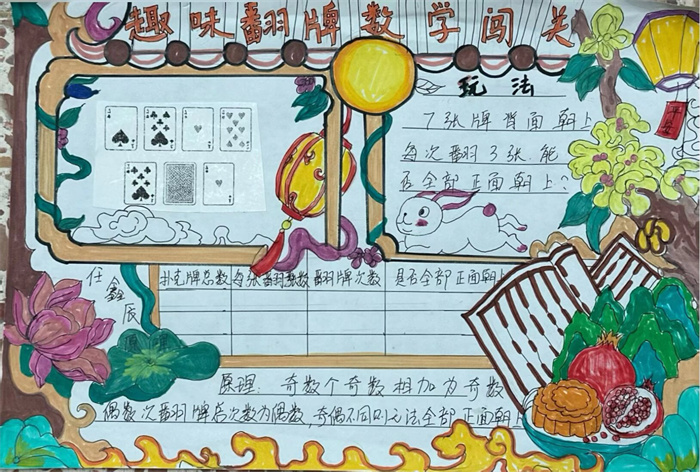 趣味翻牌数学闯关
玩法
7张牌背面朝上
每次翻3张,能
否全部正面朝上?
任鑫辰
扑克牌总数 每次翻张数 翻牌次数 是否全部正面朝上
原理: 奇数个奇数相加为奇数
偶数次翻牌后次数为偶数,奇偶不同则无法全部正面朝上